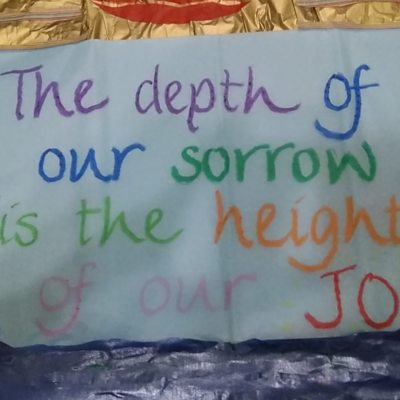 The depth of
our sorrow
is the height
of our JO